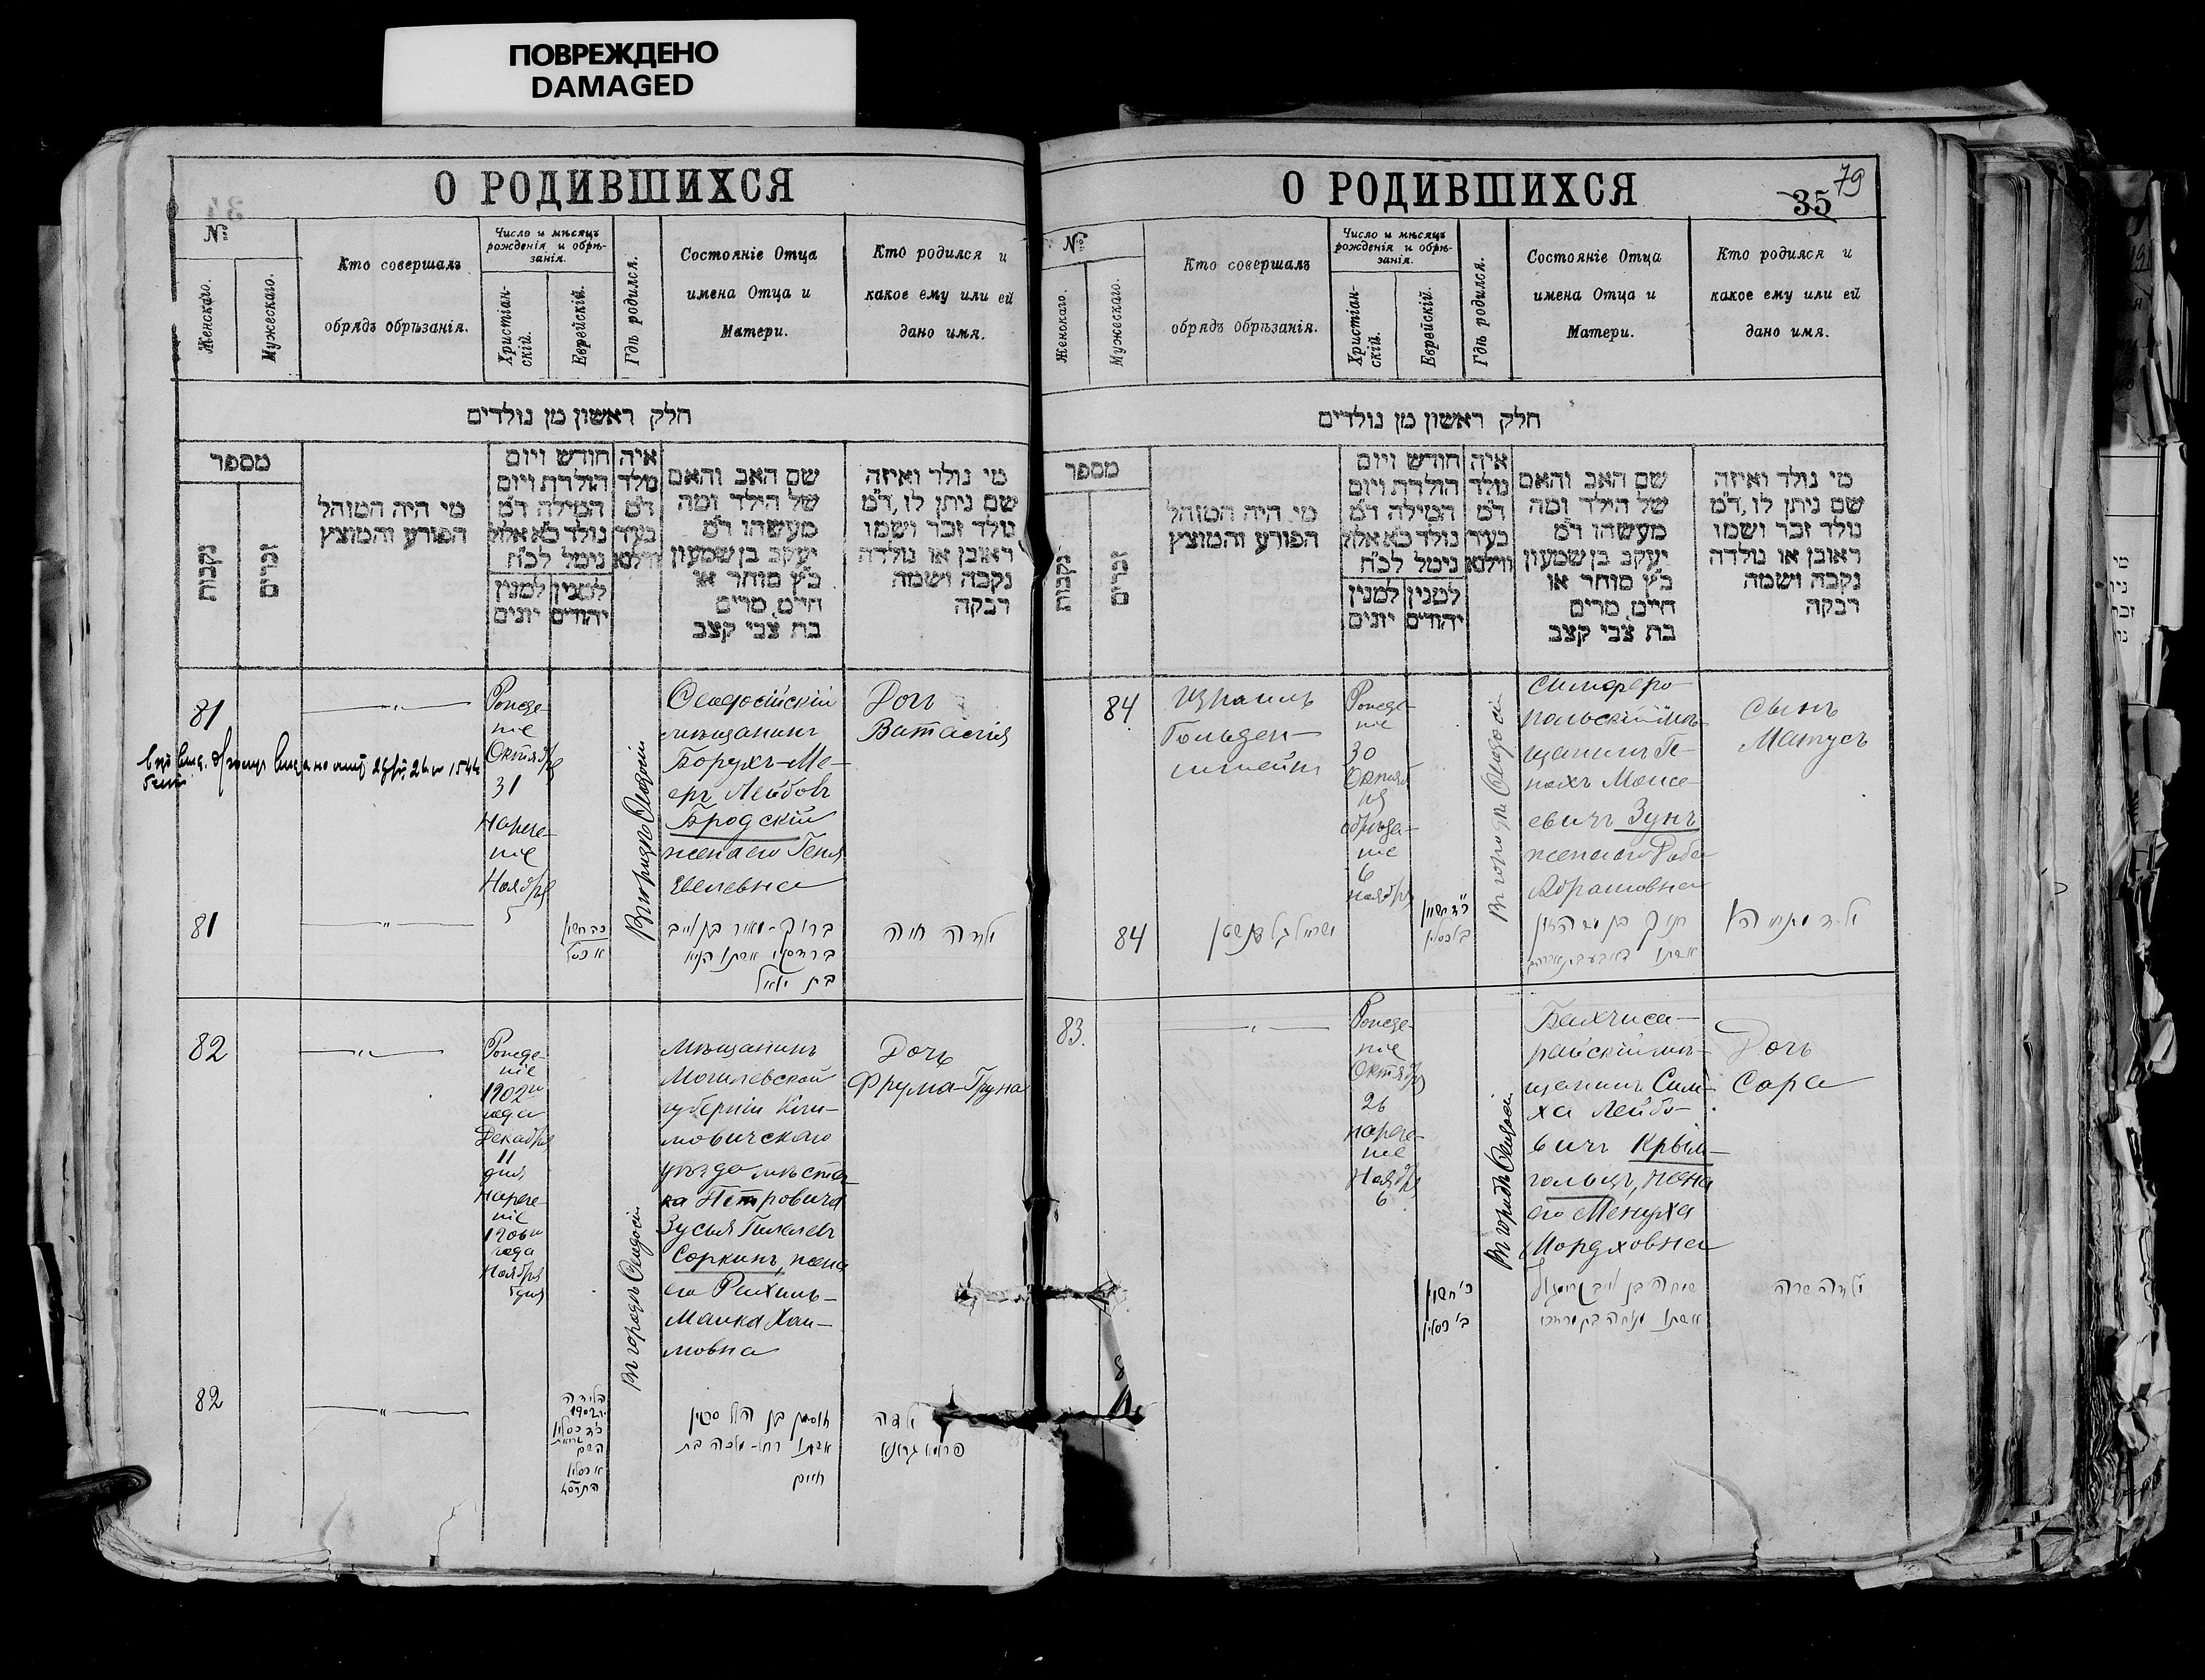 ПОВРЕЖДЕНО
DAMAGED
О РОДИВШИХСЯ
№
Женскаго.
Мужескаго.
Кто совершалъ
обрядъ обрѣзанія.
Число и мѣсяцъ
рожденія и обрѣ-
занія.
Христіан-
скій.
Еврейскій.
Гдѣ родился.
Состояніе Отца
имена Отца и
Матери.
Кто родился и
какое ему или ей
дано имя.
חלק ראשון מן נולדים
מספר
נקבות
זכרים
מי היה המוהל
הפורע והמוצץ
חודש ויום
הולדת ויום
המילה ד״מ
נולד כ״א אלול
נימל לכ״ח
למנין
יונים
למנין
יהודים
איה
מלד
ד״מ
בעיר
ווילנא
שם האב והאם
של הילד ומה
מעשהו ד״מ
יעקב בן שמעון
כ״ץ סוחר או
חיים, מרים
בת צבי קצב
מי נולד ואיזה
שם ניתן לו, ד״מ
נולד זכר ושמו
ראובן או נולדה
נקבה ושמה
רבקה
81
Рожде-
ніе
Октября
31
Нарече-
ніе
Ноября
5
Въ городѣ Ѳеодосіи
Ѳеодосійскій
мѣщанинъ
Борухъ-Ме-
еръ Лейбовъ
Бродскій
жена его Геня
Евелевна
Дочь
81
כה חשון
ברוך-מאיר בן לייב
ילדה חיה
82
Рожде-
ніе
1902 го
года
Декабря
11
дня
Нарече-
ніе
1906 го
года
Ноября
5 дня
Въ городѣ Ѳеодосіи
Мѣщанинъ
Могилевской
губерніи Кли-
мовичскаго
уѣзда мѣстеч-
ка Петровича
Зусья
Соркинъ, жена
его Рахиль-
Малка Хаи-
мовна
Дочь
Фрума-Груна
82
הלידה
1902
כסלו
השם
אשתו רחל-מלכה בת
חיים
ילדה
פרומא גרונא
О РОДИВШИХСЯ
35
79
№
Женскаго.
Мужескаго.
Кто совершалъ
обрядъ обрѣзанія.
Число и мѣсяцъ
рожденія и обрѣ-
занія.
Христіан-
скій.
Еврейскій.
Гдѣ родился.
Состояніе Отца
имена Отца и
Матери.
Кто родился и
какое ему или ей
дано имя.
חלק ראשון מן נולדים
מספר
נקבות
זכרים
מי היה המוהל
הפורע והמוצץ
חודש ויום
הולדת ויום
המילה ד״מ
נולד כ״א אלול
נימל לכ״ח
למנין
יונים
למנין
יהודים
איה
מלד
ד״מ
בעיר
ווילנא
שם האב והאם
של הילד ומה
מעשהו ד״מ
יעקב בן שמעון
כ״ץ סוחר או
חיים, מרים
בת צבי קצב
מי נולד ואיזה
שם ניתן לו, ד״מ
נולד זכר ושמו
ראובן או נולדה
נקבה ושמה
רבקה
84
Израиль
Гольден-
штейнъ
Рожде-
ніе
30
Октяб-
ря
обрѣза-
ніе
6
ноября
Въ городѣ Ѳеодосіи
Симферо-
польскій мѣ-
щанинъ Ге-
нахъ Моисе-
евичъ Зунъ
жена его
Абрамовна
Сынъ
Матусъ
84
83.
Рожде-
ніе
Октября
26
нарече-
ніе
Ноября
6
Въ городѣ Ѳеодосіи
Бахчиса-
райскій мѣ-
щанинъ Сим-
ха Лейбо-
вичъ Крым-
гольцъ, жена
его Менуха
Мордховна
Дочь
Сара
כ׳ חשון
ב׳ כסלו
אשתו מנוחה בת מרדכי
ילדה שרה